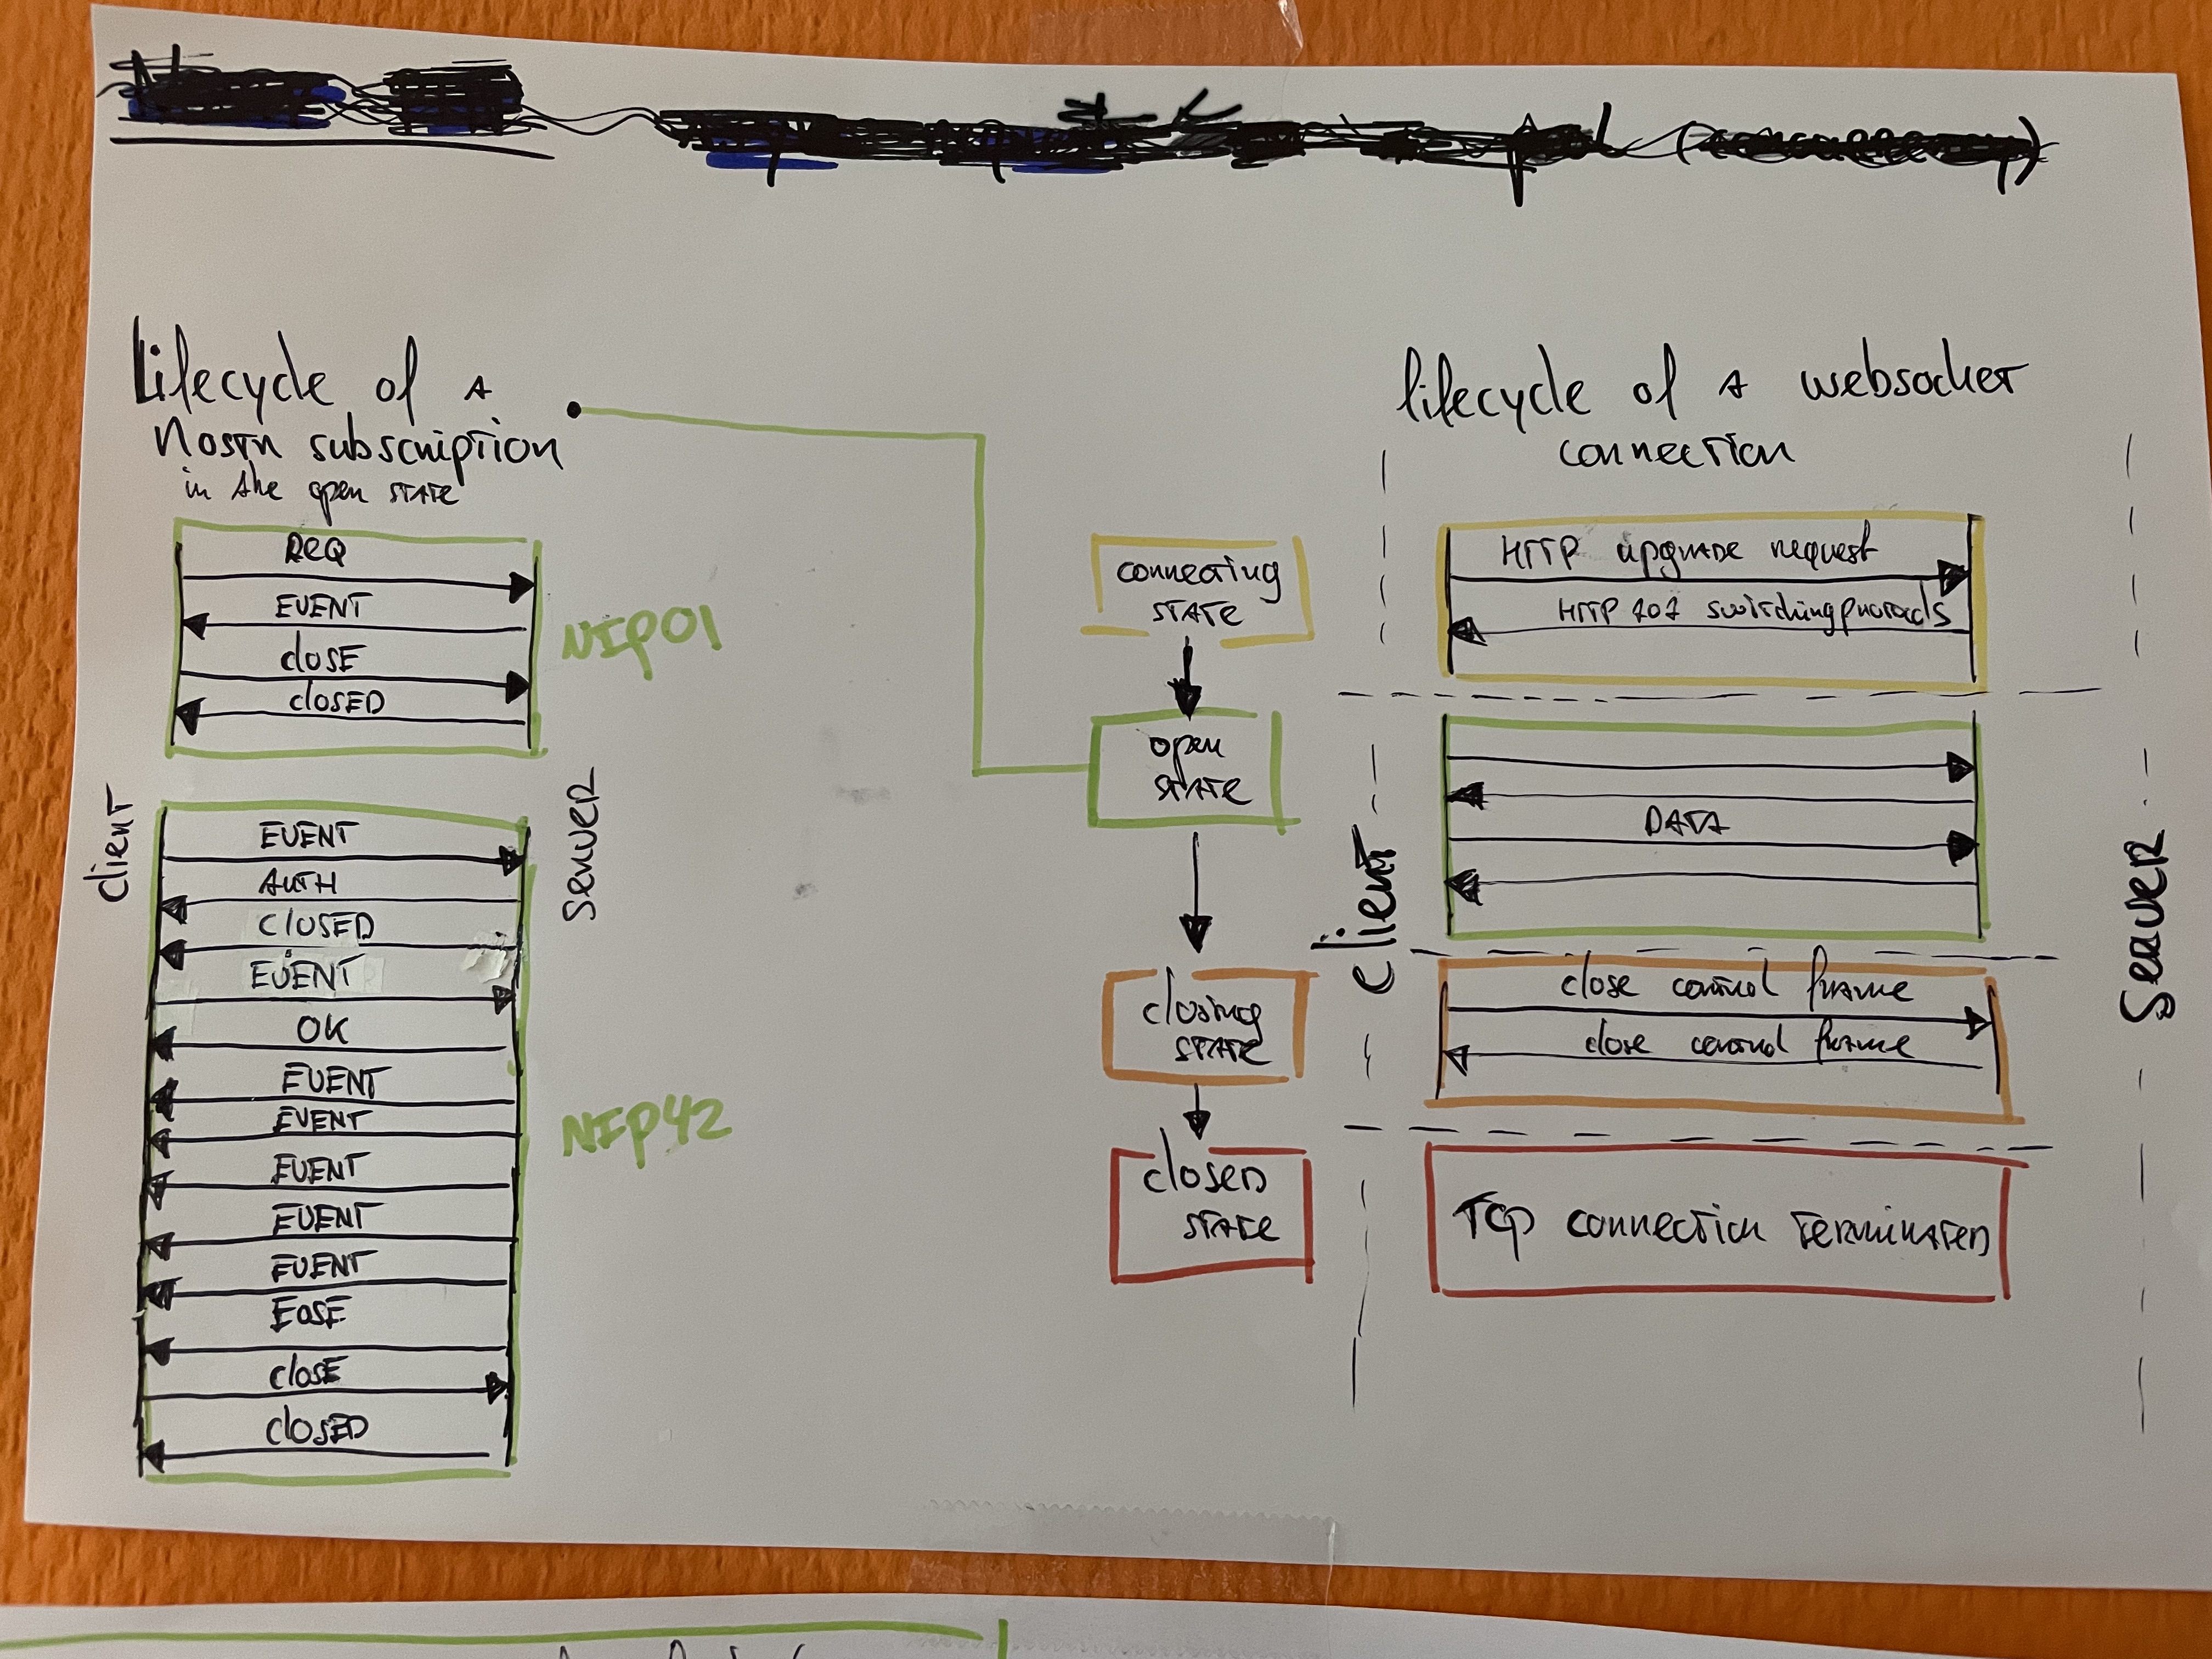 Lifecycle of a
Nostr subscription
in the open state
REQ
EVENT
close
closed
NIP01
client
server
EVENT
AUTH
CLOSED
EVENT
OK
EVENT
EVENT
EVENT
EVENT
EVENT
EOSE
close
closed
NIP42
connecting
state
open
state
closing
state
closed
state
lifecycle of a websocket
connection
client
server
HTTP upgrade request
HTTP 101 switching protocols
DATA
close control frame
close control frame
TCP connection terminated